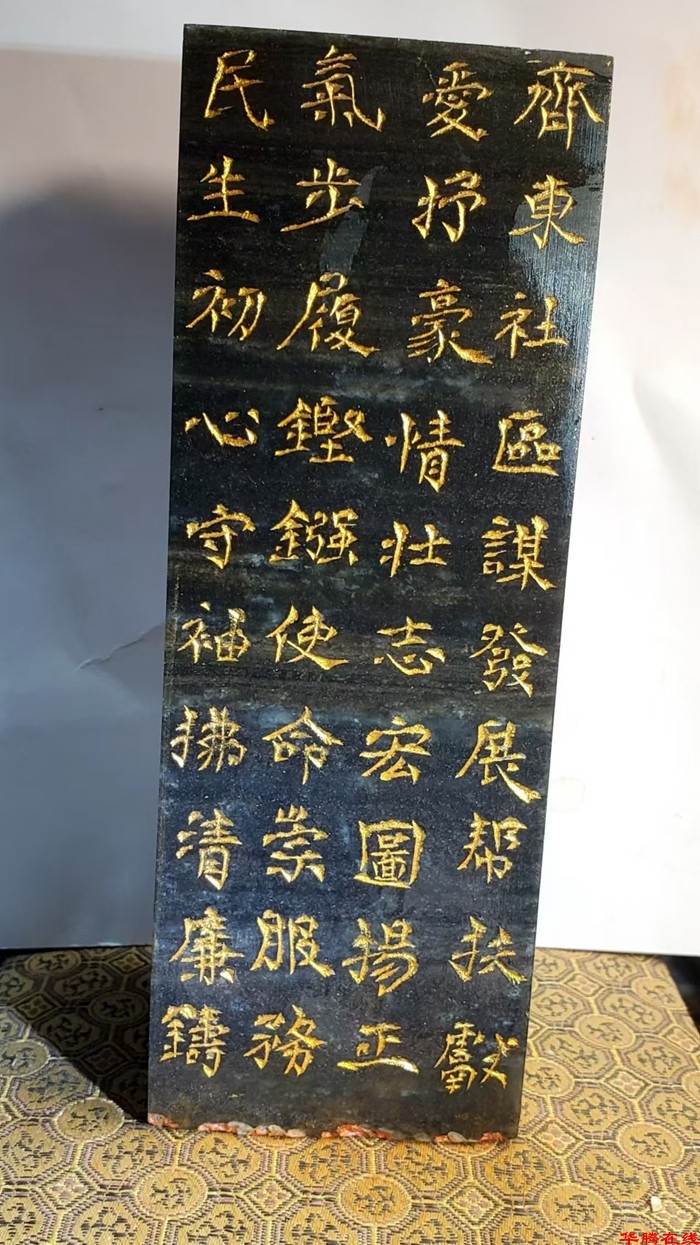 齊東社區謀發展帮扶獻
愛抒豪情壯志宏圖揚正
氣步履鏗鏹使命崇服務
民生初心守袖拂清廉鑄
华腾在线